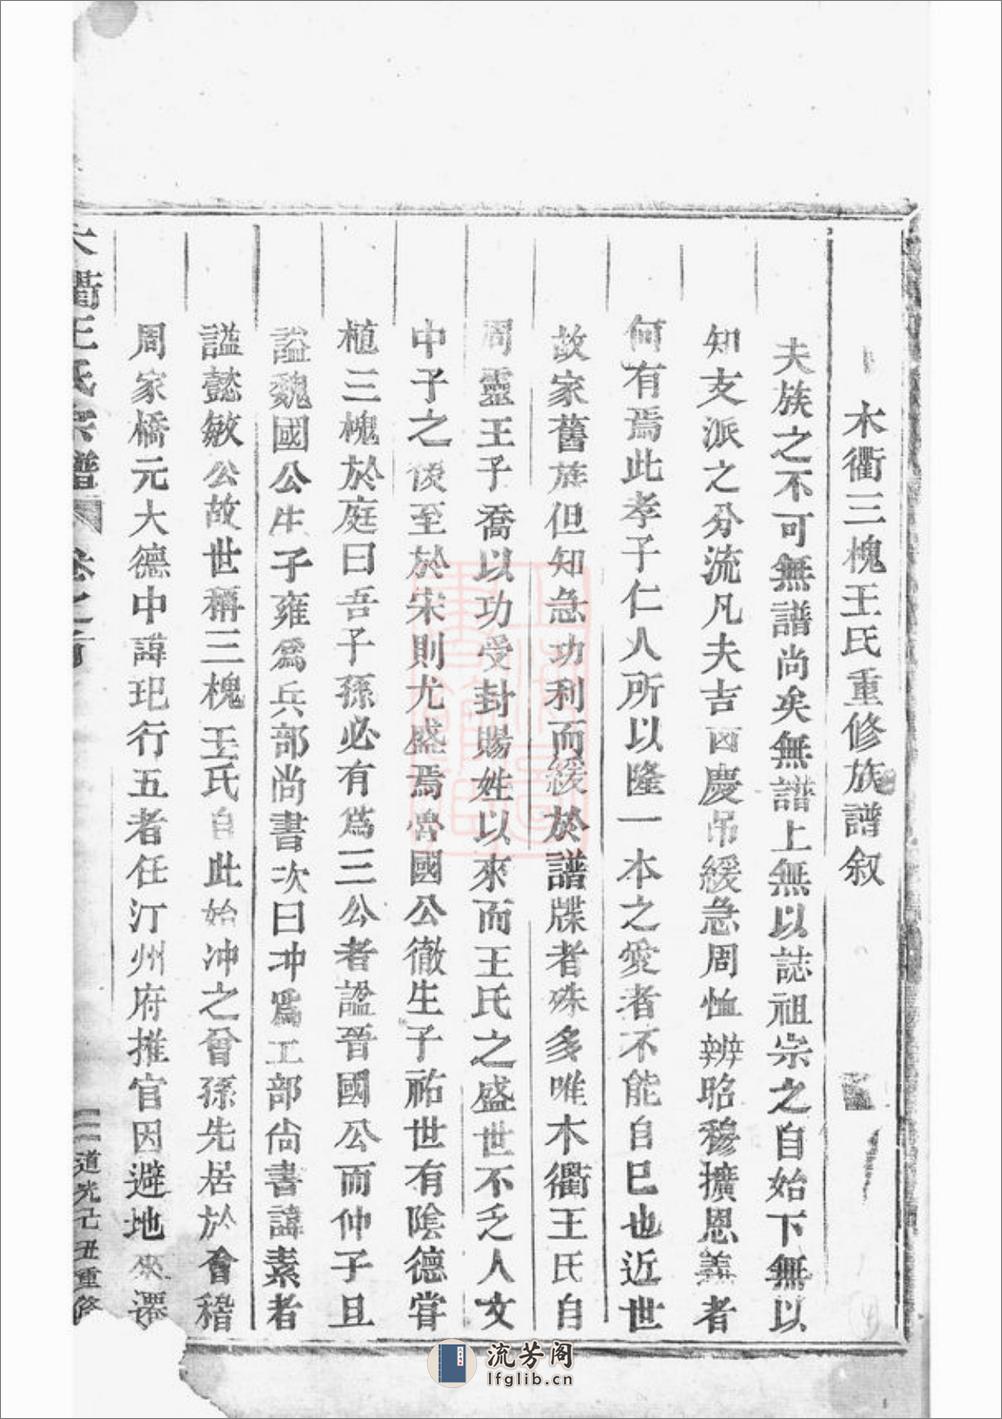 木衢三槐王氏重修族譜叙
夫族之不可無譜尚矣無譜上無以誌祖宗之自始下無以
知支派之分流凡夫吉凶慶吊緩急周恤辨昭穆擴恩義者
何有焉此孝子仁人所以隆一本之愛者不能自已也近世
故家舊族但知急功利而緩於譜牒者殊多唯木衢王氏自
周靈王子喬以功受封賜姓以來而王氏之盛世不乏人文
中子之後至於宋則尤盛焉魯國公徹生子祐世有陰德嘗
植三槐於庭曰吾子孫必有為三公者謚晉國公而仲子旦
謚魏國公生子雍為兵部尚書次曰冲為工部尚書諱素者
謚懿敏公故世稱三槐王氏自此始冲之曾孫先居於會稽
周家橋元大德中諱玘行五者任汀州府推官因避地來遷
木衢王氏宗譜 卷之首 道光丑重修
流芳阁
lfglib.cn